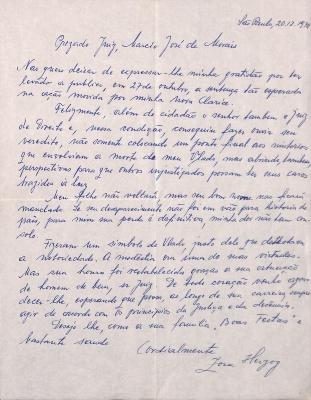 São Paulo, 20.12.1978
Prezado Juiz, Marcio José de Moraes
Não quero deixar de expressar-lhe minha gratidão por ter
levado a publico, em 27 de outubro, a sentença tão esperada
na ação movida por minha nora Clarice.
Felizmente, além de cidadão o senhor tambem é Juiz
de Direito e, nessa condição, conseguiu fazer ouvir seu
veredito, não somente colocando um ponto final aos misterios
que envolviam a morte de meu Vlado, mas abrindo tambem
perspectivas para que outros injustiçados possam ter seus casos
trazidos à luz.
Meu filho não voltará, mas seu bom nome não ficará
manchado. Se seu desaparecimento não foi em vão para historia do
país, para mim sua perda é definitiva, minha dor não tem con
solo.
Fizeram um simbolo de Vlado justo dele que detestava
a notoriedade. A modestia era uma de suas virtudes.
Mas sua honra foi restabelecida graças a sua atuação
de homem de bem, sr. Juiz. De todo coração venho agra-
decer-lhe, esperando que possa, ao longo de sua carreira, sempre
agir de acordo com os principios da Justiça e da decência.
Desejo lhe, como a sua familia, Boas Festas e
bastante saude
Cordialmente
Zora Herzog